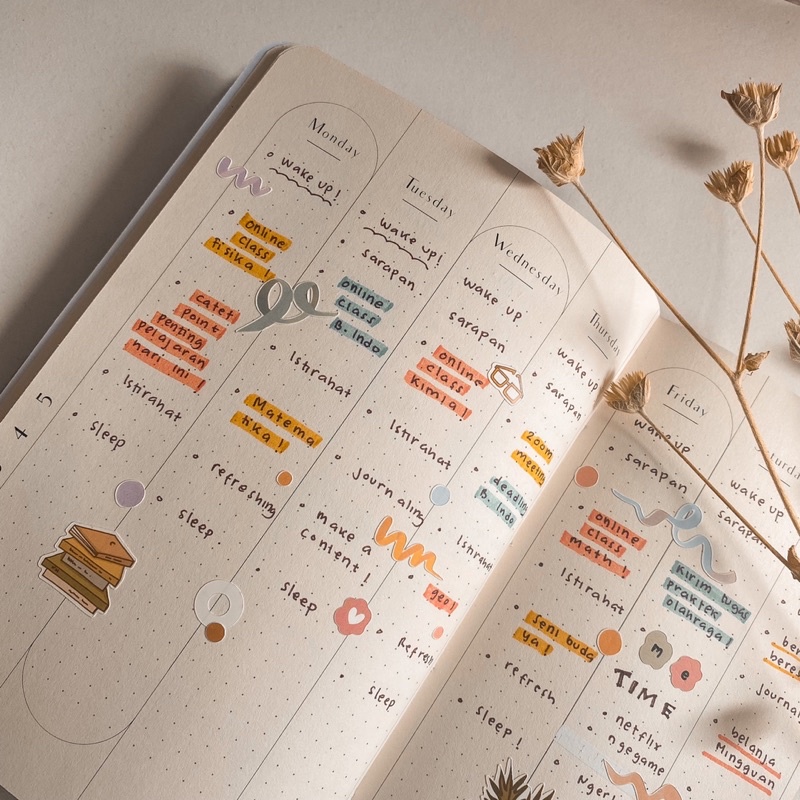 Monday
wake up!
online
class
fisika!
catet
point
penting
pelajaran
hari ini!
Istirahat
sleep
Tuesday
wake up!
sarapan
online
class
B. Indo
Istirahat
Matema
tika!
refreshing
sleep
Wednesday
wake up
sarapan
online
class
kimia!
Istirahat
Journaling
make a
content!
sleep
Thursday
wake up
sarapan
zoom
meeting
deadline
B. Indo
Istirahat
geo!
Refresh
sleep
Friday
wake up
sarapan
online
class
math!
Istirahat
seni buda
ya!
refresh
sleep!
wake up
sarapan
kirim tugas
praktek
olahraga!
m e
TIME
netflix
ngegame
belanja
Mingguan
4 5